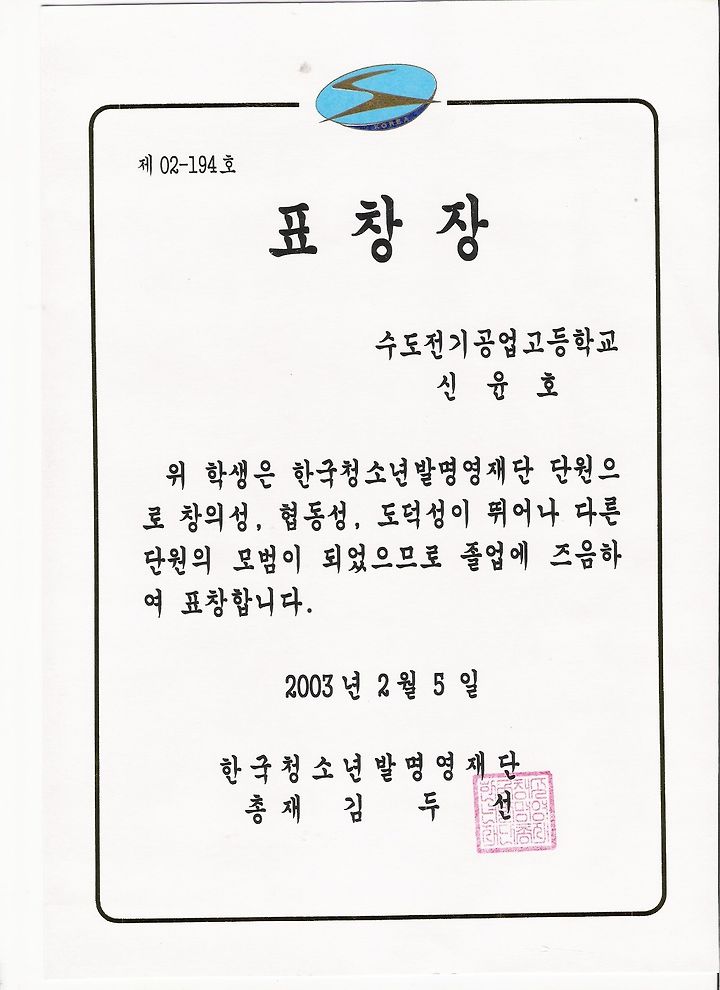 KOREA
제 02-194 호
표 창 장
수도전기공업고등학교
신 윤 호
위 학생은 한국청소년발명영재단 단원으
로 창의성, 협동성, 도덕성이 뛰어나 다른
단원의 모범이 되었으므로 졸업에 즈음하
여 표창합니다.
2003 년 2 월 5 일
한국청소년발명영재단
총 재 김 두 선